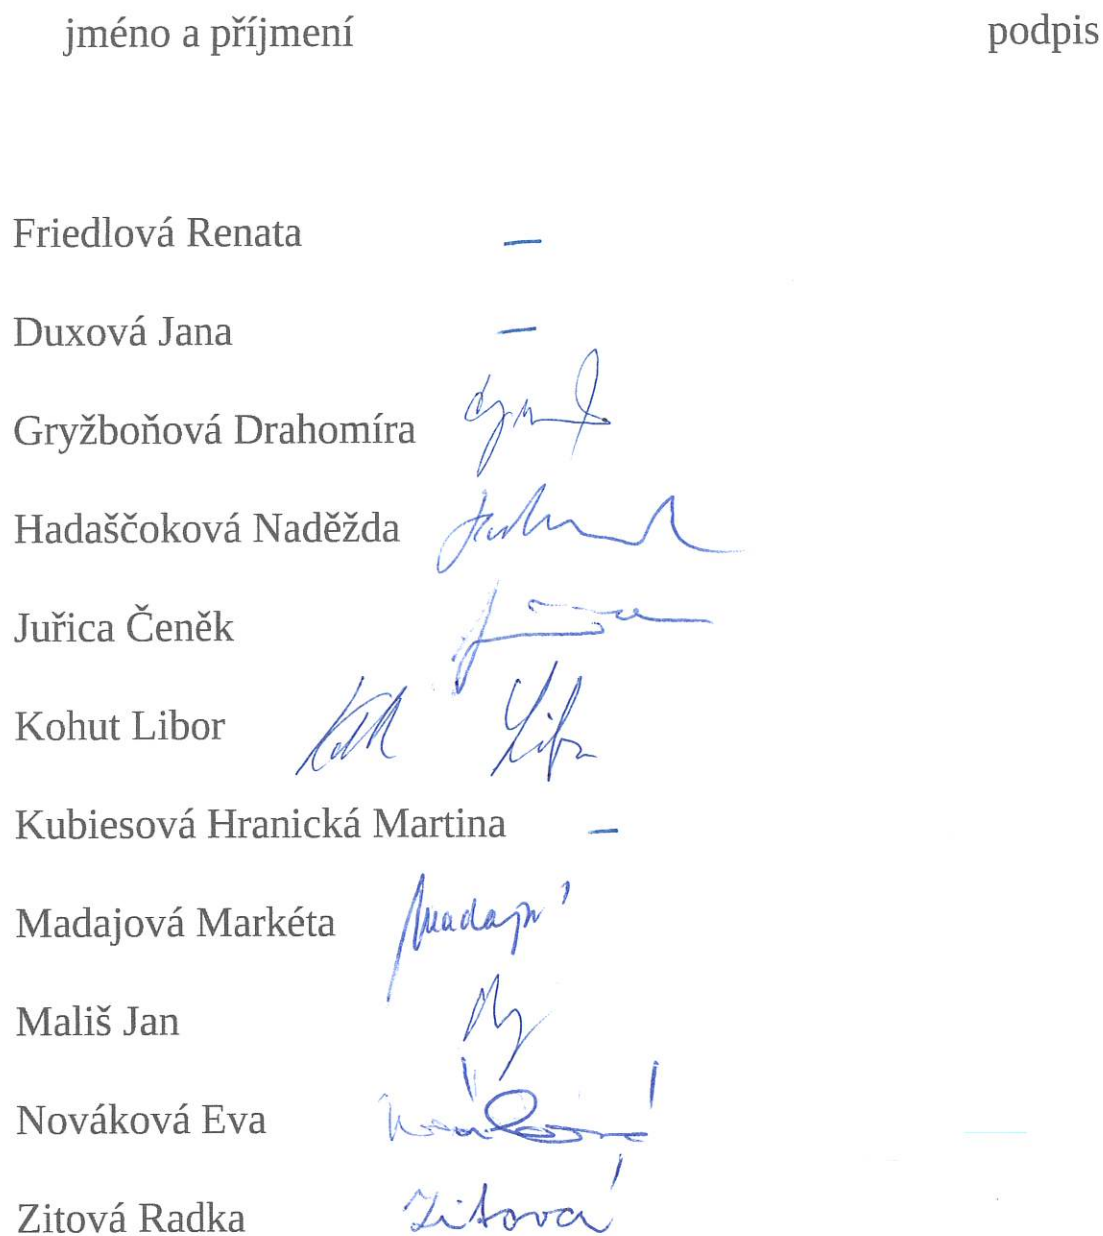 jméno a příjmení podpis
Friedlová Renata –
Duxová Jana –
Gryžboňová Drahomíra
Hadaščoková Naděžda
Juřica Čeněk
Kohut Libor
Kubiesová Hranická Martina –
Madajová Markéta
Mališ Jan
Nováková Eva
Zitová Radka Zitová